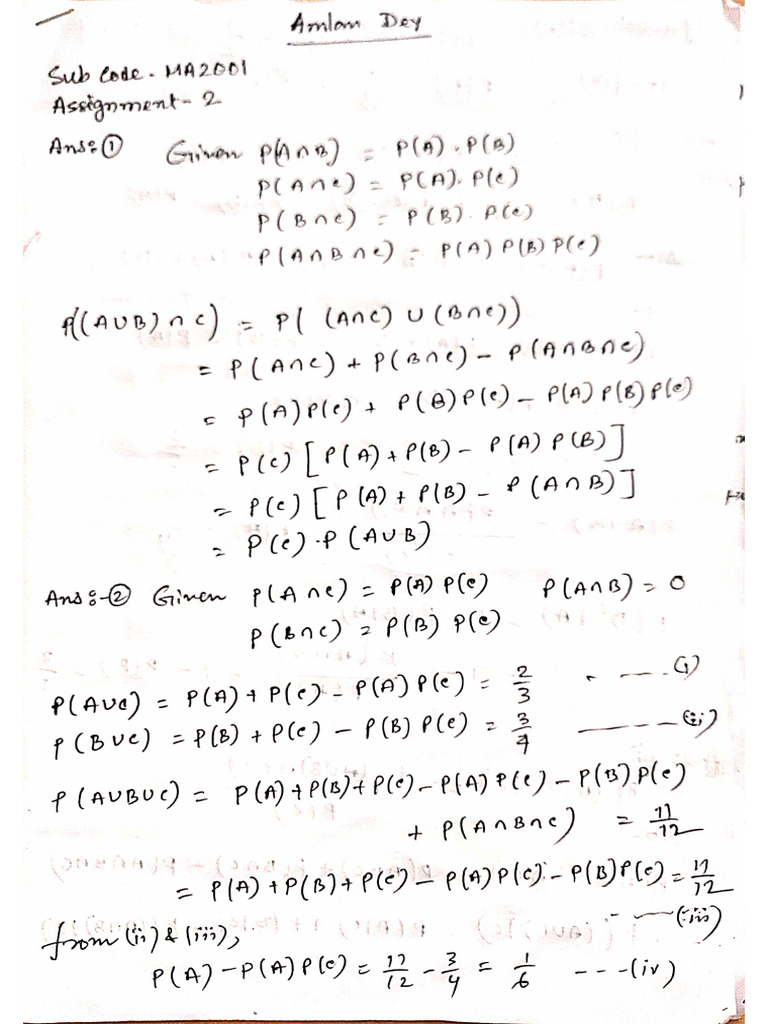 Amlan Dey
Sub Code - MA2001
Assignment - 2
Ans:① Given P(A∩B) = P(A).P(B)
P(A∩C) = P(A).P(C)
P(B∩C) = P(B).P(C)
P(A∩B∩C) = P(A) P(B) P(C)
P((A∪B)∩C) = P( (A∩C) ∪ (B∩C))
= P(A∩C) + P(B∩C) - P(A∩B∩C)
= P(A)P(C) + P(B)P(C) - P(A) P(B) P(C)
= P(C) [P(A) + P(B) - P(A) P(B)]
= P(C) [P(A) + P(B) - P(A∩B)]
= P(C).P(A∪B)
Ans:-② Given P(A∩C) = P(A) P(C) P(A∩B) = 0
P(B∩C) = P(B) P(C)
P(A∪C) = P(A) + P(C) - P(A) P(C) = 2/3 - ---(i)
P(B∪C) = P(B) + P(C) - P(B) P(C) = 3/4 -----(ii)
P(A∪B∪C) = P(A) + P(B) + P(C) - P(A) P(C) - P(B).P(C)
+ P(A∩B∩C) = 11/12
= P(A) + P(B) + P(C) - P(A) P(C) - P(B) P(C) = 11/12
- --(iii)
from (ii) & (iii),
P(A) - P(A) P(C) = 11/12 - 3/4 = 1/6 ---(iv)